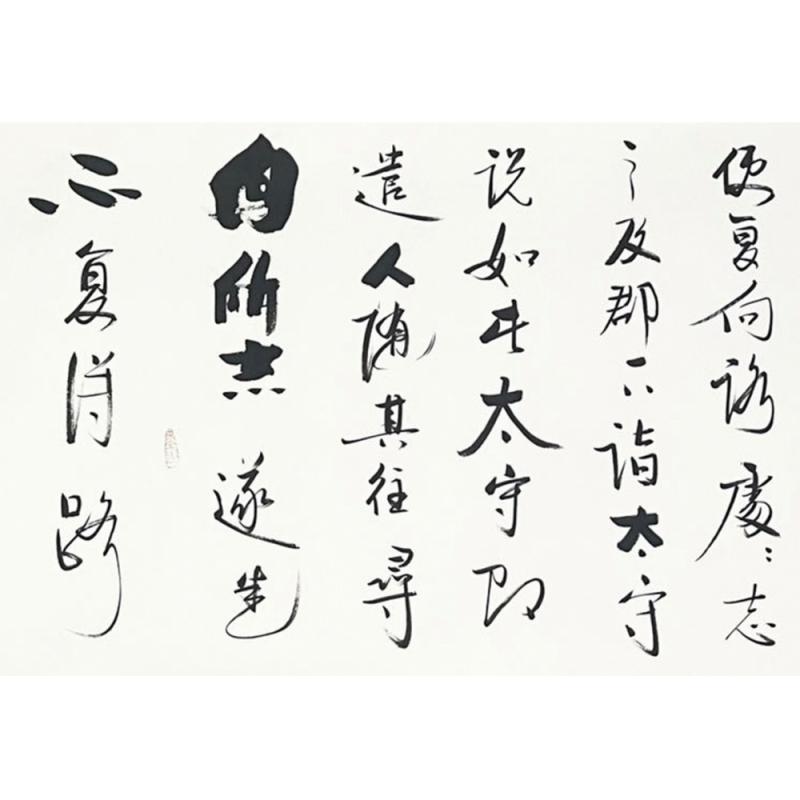 便复向路處〻志
之及郡下詣太守
说如此太守即
遣人随其往尋
向所志遂迷
不复得路